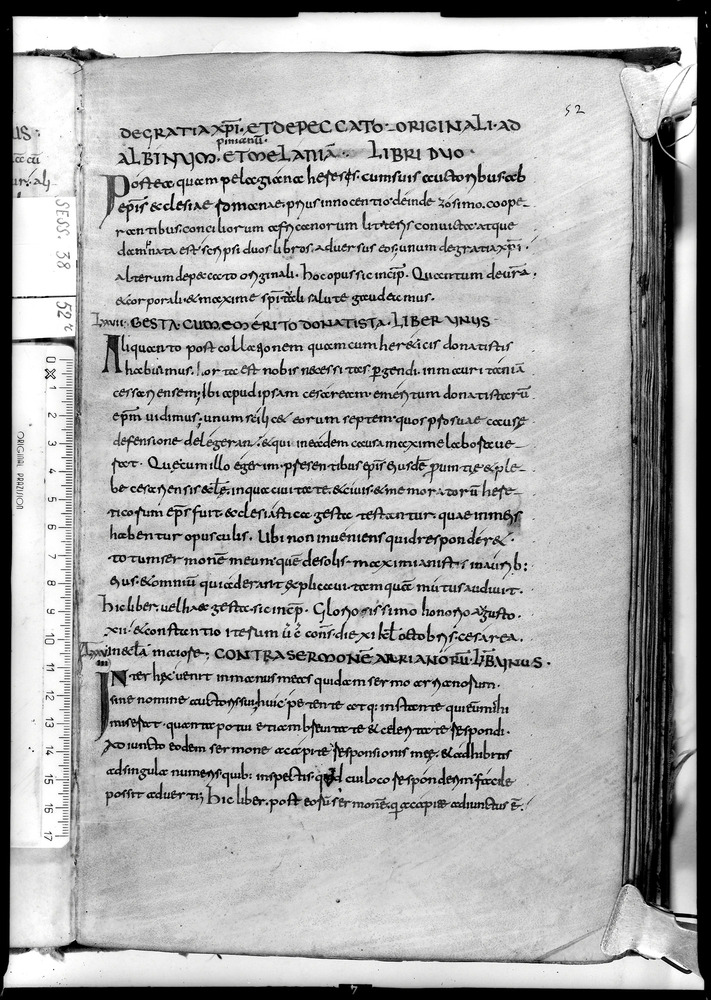 52
DEGRATIA XPI · ET DE PECCATO · ORIGINALI · AD
pinianū ·
ALBINUM · ET MELANIĀ · LIBRI DUO ·
Postea quam pelagiana heresis · cum suis auctoribus ab
epis ecclesiae romanae · prius innocentio deinde zosimo · coope
rantibus conciliorum africanorum litteris convicta atque
damnata est scripsi duos libros · adversus eos · unum de gratia xpi ·
alterum de peccato originali · hoc opus sic incip · Quantum de ur̄a ·
& corporali · & maxime spitali salute gaudeamus ·
Lxvii · GESTA · CUM EMERITO DONATISTA · LIBER UNUS
Aliquanto post collationem quam cum hereticis donatistis
habuimus · orta est nobis necessitas pergendi in mauritaniā
cesariensem · Ibi apud ipsam cesaream emeritum donatistarū
epm vidimus · unum scilic& eorum septem quos pro suae causae
defensione delegerant · & qui in eadem causa maxime laborave
rat · Quecum illo egerim · presentibus epis eiusdē provintie & ple
be cesariensis eccle · in qua civitate · & civis · & memoratorū here
ticorum eps fuit · ecclesiastica gesta testantur · quae in meis
habentur opusculis · Ubi non inveniens quid responder& ·
totum sermonē meum · que de solis maximianistis in aurib:
eius · & omniū qui aderant explicavi · tamquā mutus audivit ·
hic liber · vel haec gesta · sic incip · Glorio sissimo honorio agusto ·
xii · & constantio iterum · ūc̄ cons · die xi kl octobris · cesarea ·
in eclā maiore · CONTRA SERMONĒ ARRIANORŪ · LIB̄ UNUS ·
Inter hec venit in manus meas quidam sermo arrianorum ·
sine nomine auctoris sui · huic petente atq; instante qui eū mihi
miserat · quanta potui etiam brevitate & celeritate respondi ·
Adiuncto eodem sermone a capite responsionis meę · & adhibitis
ad singula numeris quib: inspectis quid cui loco responderim facile
possit adverti · hic liber · post eorū sermonē · qi a capite adiunctus ē ·
SESS. 38
52 r
0 1 2 3 4 5 6 7 8 9 10 11 12 13 14 15 16 17